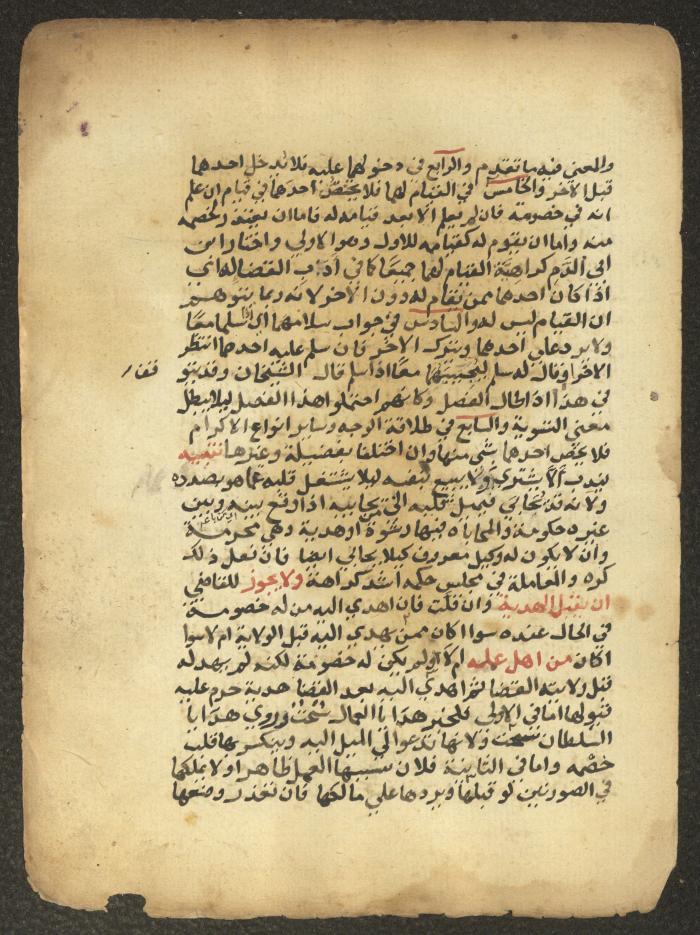 والمعني فيه ما تقدم والرابع في دخولهما عليه فلا يدخل احدهما
قبل الاخر والخامس في القيام لهما فلا يخص احدهما في قيام ان علم
انه في خصومة فان لم يعلم الا بعد قيامه له فاما ان يعتذر لخصمه
منه واما ان يقوم له كقيامه للاول وهو الاولي واختار ابن
ابي الدم كراهية القيام لهما جميعا كما في اداب القضا له اي
اذا كان احدهما ممن يقام له دون الاخر لانه ربما يتوهم
ان القيام ليس له والسادس في جواب سلامهما اي ان سلما معا
ولا يرد علي احدهما ويترك الاخر فان سلم عليه احدهما انتظر
الاخر او قال له سلم ليجيبهما معا اذا سلم قال الشيخان وقد يتو
قف
في هذا اذا طال الفصل وكانهم احتملوا هذا الفصل ليلا يبطل
معني التسوية والسابع في طلاقة الوجه وساير انواع الاكرام
فلا يخص احدهما بشي منها وان اختلفا بفضيلة وغيرها تنبيه
يندب الا يشتري ولا يبيع بنفسه ليلا يشتغل قلبه عما هو بصدده
ولانه قد يحابي فيميل قلبه الي من يحابيه اذا وقع بينه وبين
غيره حكومة والمحاباة فيها رشوة او هدية وهي محرمة
وان لا يكون له وكيل معروف كيلا يحابي ايضا فان فعل ذلك
كره والمعاملة في مجلس حكمه اشد كراهة ولا يجوز للقاضي
ان يقبل الهدية وان قلت فان اهدي اليه من له خصومة
في الحال عنده سوا اكان ممن يهدي اليه قبل الولاية ام لا سوا
اكان من اهل عمله ام لا او لم يكن له خصومة لكنه لم يهد له
قبل ولايته القضا ثم اهدي اليه بعد القضا هدية حرم عليه
قبولها اما في الاولي فلخبر هدايا العمال سحت وروي هدايا
السلطان سحت ولانها تدعوا الي الميل اليه وينكسر بها قلب
خصمه واما في الثانية فلان سببها العمل ظاهرا ولا يملكها
في الصورتين لو قبلها ويردها علي مالكها فان تعذر وضعها